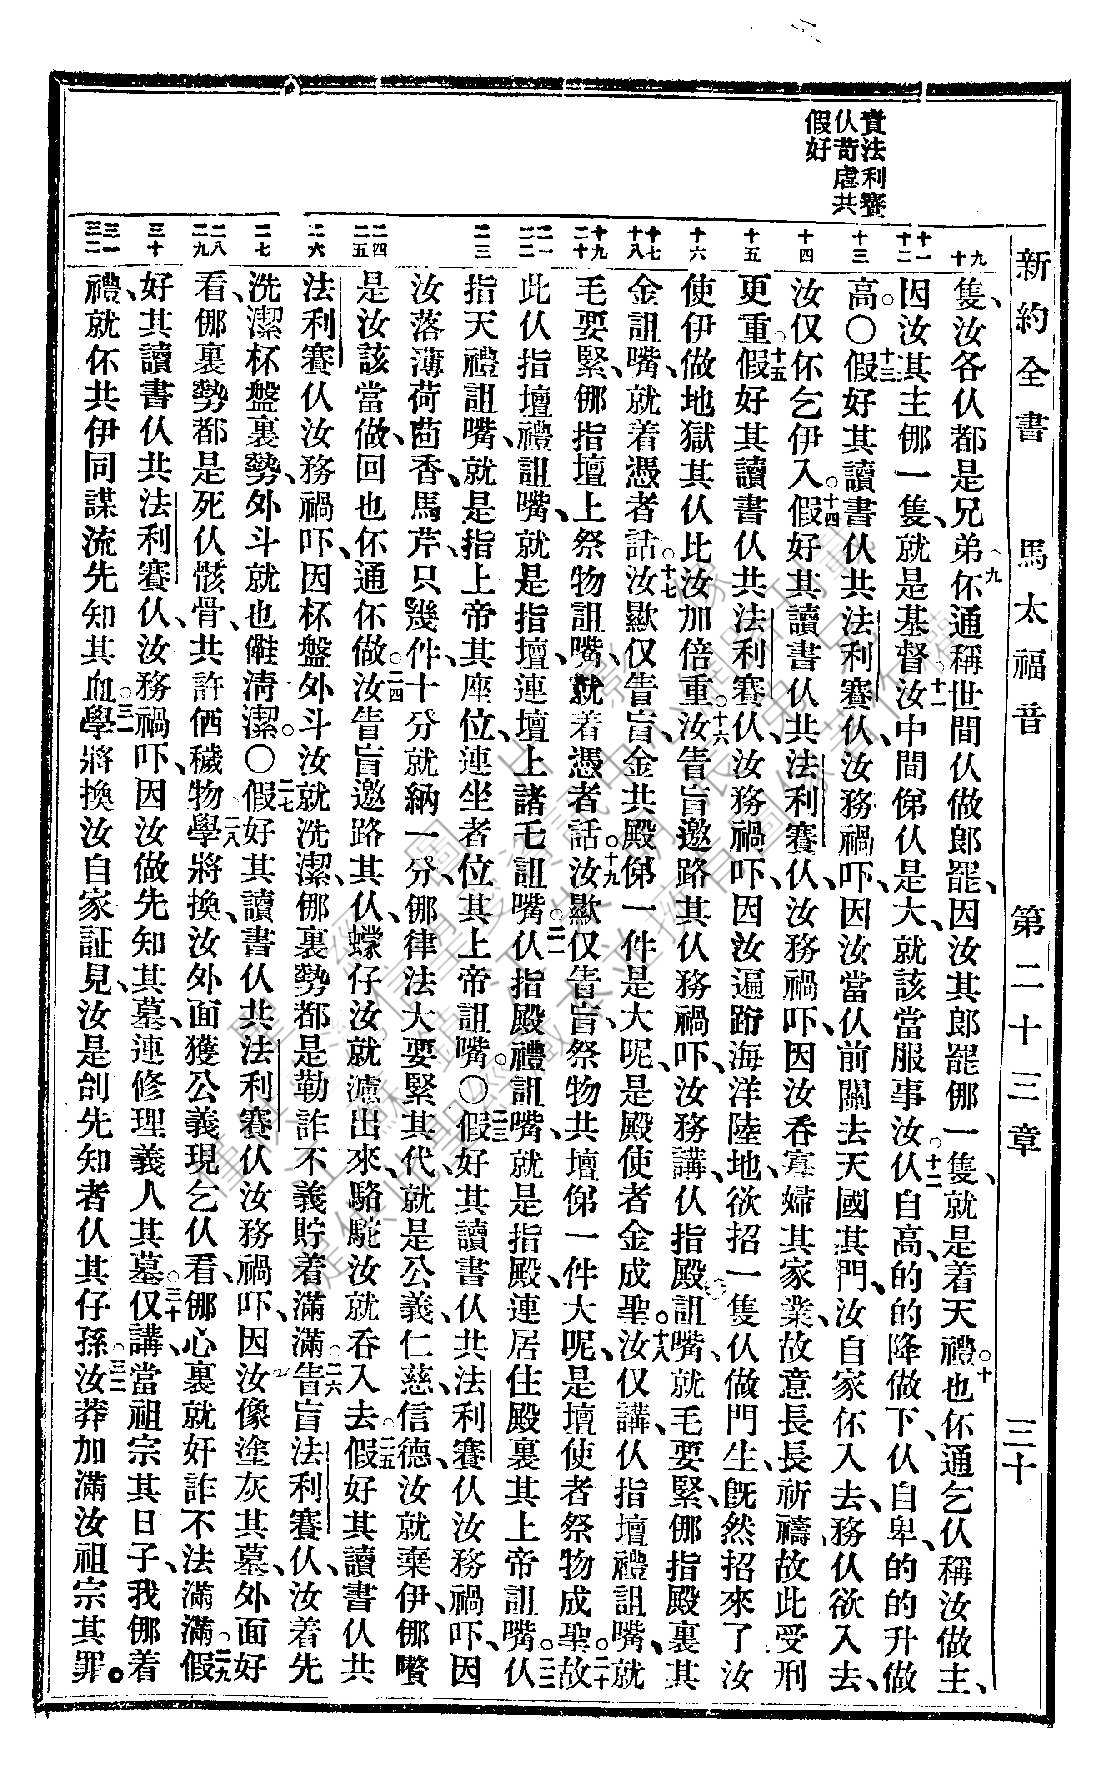 新約全書　馬太福音　第二十三章　三十
責法利賽
仫苛虐共
假好
九 十
十一 十二
十三
十四
十五
十六
十七 十八
十九 二十
二一 二二
二三
二四 二五
二六
二七
二八 二九
三十
三一 三二
隻、汝各仫都是兄弟、九伓通稱世間仫做郎罷、因汝其郎罷那一隻、就是着天禮。十也伓通乞仫稱汝做主、
因汝其主㑚一隻、就是基督。十一汝中間俤仫是大、就該當服事汝。十二仫自高的的降做下、仫自卑的的升做
高。〇十三假好其讀書仫共法利賽仫、汝務禍吓、因汝當仫前關去天國其門、汝自家伓入去、務仫欲入去、
汝仅伓乞伊入。十四假好其讀書仫共法利賽仫、汝務禍吓、因汝吞寡婦其家業、故意長長祈禱、故此受刑
更重。十五假好其讀書仫共法利賽仫、汝務禍吓、因汝遍跡海洋陸地、欲招一隻仫做門生、旣然招來了、汝
使伊做地獄其仫、比汝加倍重。十六汝眚盲邀路其仫務禍吓、汝務講、仫指殿詛嘴、就毛要緊、㑚指殿裏其
金詛嘴、就着憑者話。十七汝歁仅眚盲、金共殿俤一件是大呢、是殿使者金成聖。十八汝仅講、仫指壇禮詛嘴、就
毛要緊、㑚指壇上祭物詛嘴、就着憑者話。十九汝歁仅眚盲、祭物共壇俤一件大呢、是壇使者祭物成聖。二十故
此仫指壇禮詛嘴、就是指壇連壇上諸乇詛嘴。二一仫指殿禮詛嘴、就是指殿連居住殿裏其上帝詛嘴。二二仫
指天禮詛嘴、就是指上帝其座位、連坐者位其上帝詛嘴。〇二三假好其讀書仫共法利賽仫汝務禍吓、因
汝落薄荷茴香馬芹只幾件、十分就納一分、㑚律法大要緊其代、就是公義、仁慈、信德、汝就棄伊、㑚嚽
是汝該當做、回也伓通伓做。二四汝眚盲邀路其仫、蠓仔汝就濾出來、駱駝汝就吞入去。二五假好其讀書仫共
法利賽仫汝務禍吓、因杯盤外斗汝就洗潔、㑚裏勢都是勒詐不義貯着滿滿。二六眚盲法利賽仫、汝着先
洗潔杯盤裏勢、外斗就也儺淸潔。〇二七假好其讀書仫共法利賽仫汝務禍吓、因汝像塗灰其墓、外面好
看、㑚裏勢都是死仫骸骨、共許㑚穢物。二八學將換、汝外面獲公義現乞仫看、㑚心裏就奸詐不法滿滿。二九假
好其讀書仫共法利賽仫、汝務禍吓、因汝做先知其墓、連修理義人其墓。三十仅講、當祖宗其日子、我㑚着
禮、就伓共伊同謀流先知其血。三一學將換汝自家証見、汝是刣先知者仫其仔孫。三二汝莽加滿汝祖宗其罪。